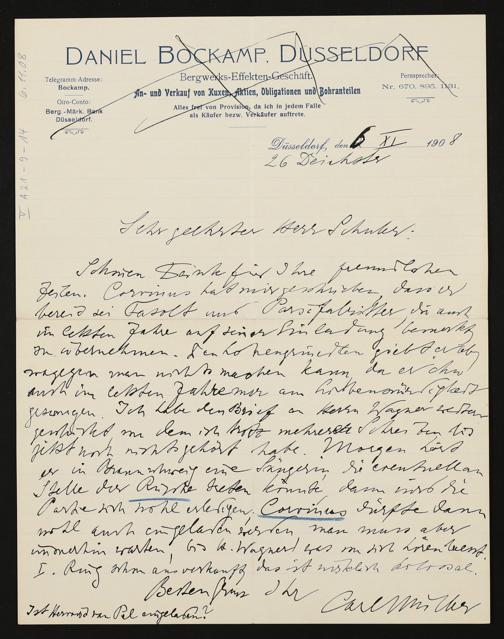 DANIEL BOCKAMP, DÜSSELDORF
Bergwerks-Effekten-Geschäft.
An- und Verkauf von Kuxen, Aktien, Obligationen und Bohranteilen
Alles frei von Provision, da ich in jedem Falle
als Käufer bezw. Verkäufer auftrete.
Telegramm-Adresse:
Bockamp.
Giro-Conto:
Berg.-Märk. Bank
Düsseldorf.
Fernsprecher:
Nr. 670, 895, 1131.
Düsseldorf, den 6 XI 1908
26 Deichstr
Sehr geehrter Herr Schuler.
Schönen Dank für Ihre freundlichen
Zeilen. Corvinus hat mir geschrieben, dass er
bereit sei Fasolt und Parsifalritter, die auch
im letzten Jahre auf seiner Einladung bemerkt
zu übernehmen. Den giebt er ab
wogegen man nichts machen kann, da er ihn
auch im letzten Jahre nur am
gesungen. Ich habe den Brief an Herrn Wagner
geschickt von dem ich trotz mehrerer Schreiben bis
jetzt noch nichts gehört habe. Morgen hört
er in Braunschweig eine Sängerin, die eventuell an
Stelle der treten könnte, dann wird die
Partie sich wohl erledigen. Corvinus dürfte dann
wohl auch eingeladen werden, man muss aber
immerhin warten, bis H. Wagner was von sich hören laesst.
I. Ring schon ausverkauft, das ist wirklich colossal.
Besten Gruss Ihr
Carl Müller
Ist Herr van Pal eingeladen?
V A 21-9-14 6.11.08